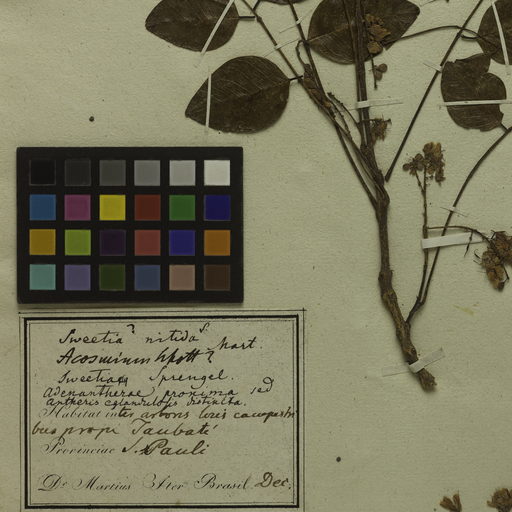 Sweetia? nitida
Mart.
Acosmium Schott?
Sweetia Sprengel.
Adenantherae proxima sed
antheris eglandulosis distincta.
Habitat inter arbores locis campestri
bus prope Taubaté
Provinciae S. Pauli
Dr. Martius Iter Brasil. Dec.